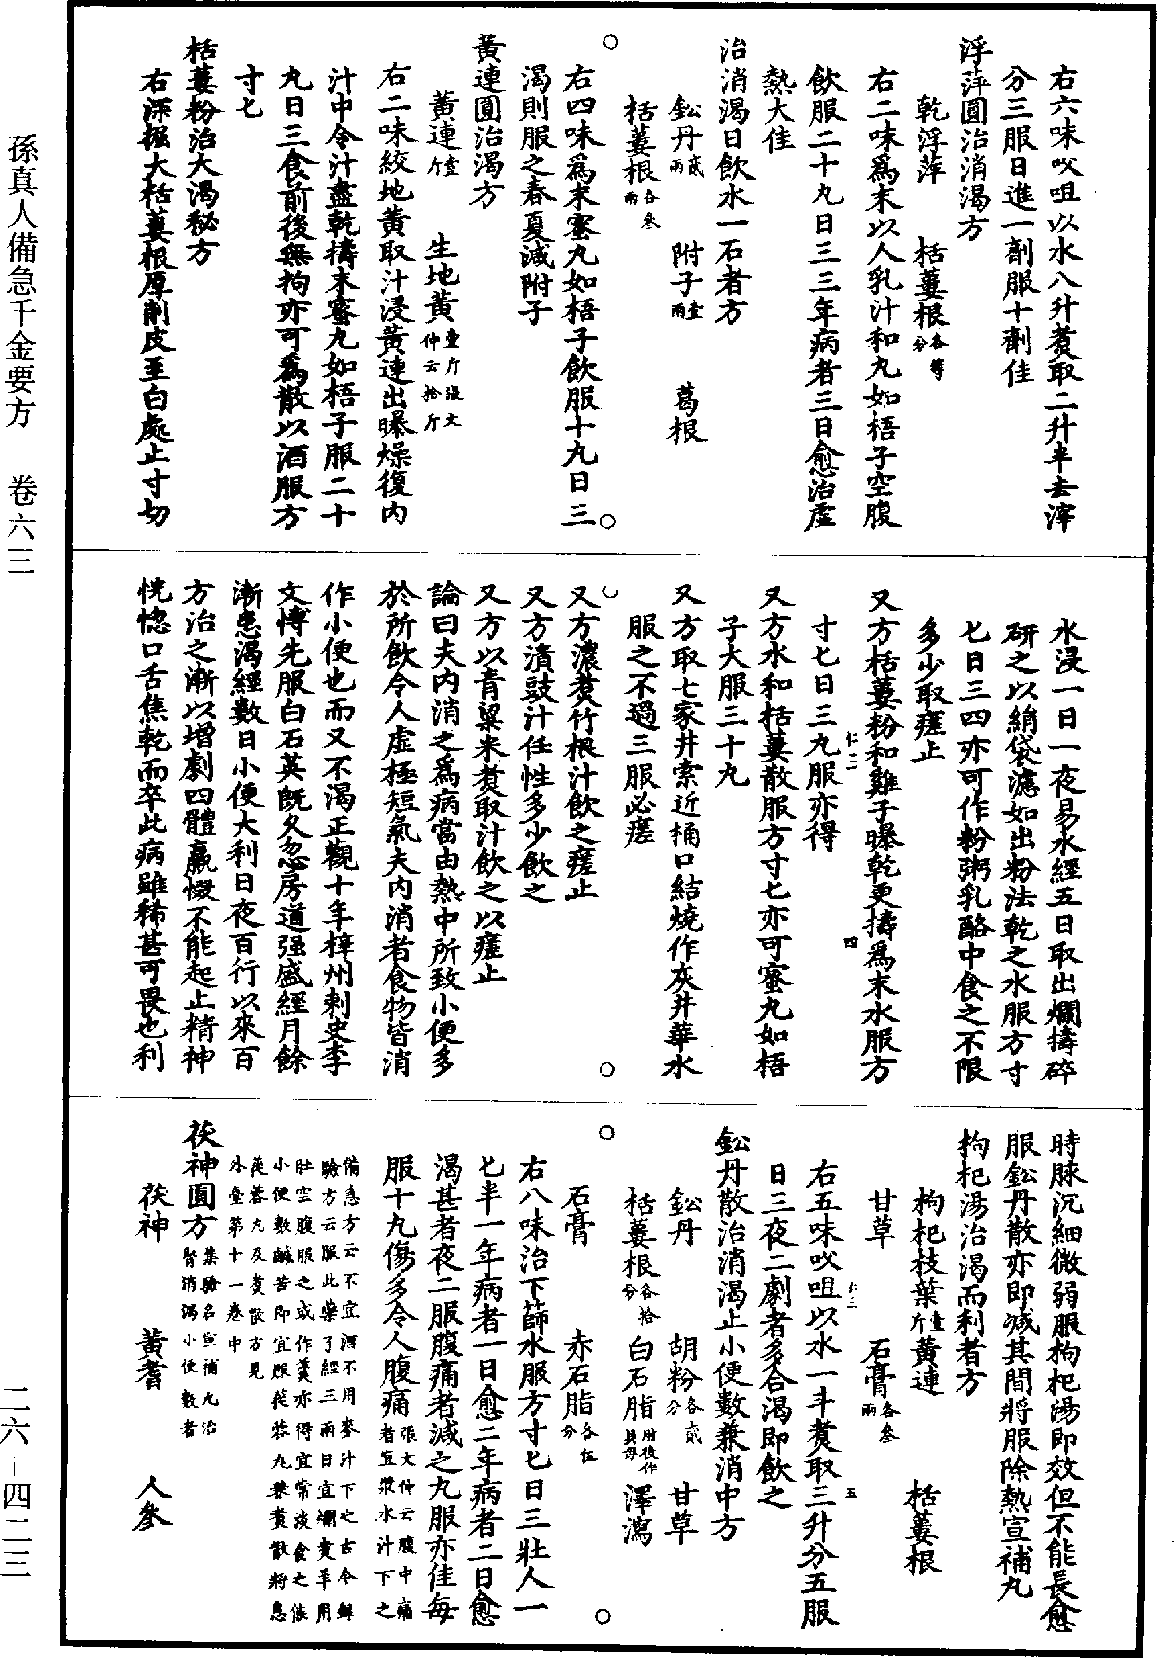 右六味㕮咀以水八升煮取二升半去滓
分三服日進一劑服十劑佳
浮萍圓治消渴方
乾浮萍　栝蔞根各等分
右二味爲末以人乳汁和丸如梧子空腹
飲服二十丸日三三年病者三日愈治虛
熱大佳
治消渴日飲水一石者方
鈆丹貳兩　附子壹兩　葛根
栝蔞根各叁兩
右四味爲末蜜丸如梧子飲服十丸日三
渴則服之春夏減附子
黃連圓治渴方
黃連壹斤　生地黃壹斤張文仲云拾斤
右二味絞地黃取汁浸黃連出曝燥復內
汁中令汁盡乾擣末蜜丸如梧子服二十
丸日三食前後無拘亦可爲散以酒服方
寸匕
栝蔞粉治大渴秘方
右深掘大栝蔞根厚削皮至白處止寸切
水浸一日一夜易水經五日取出爛擣碎
研之以絹袋濾如出粉法乾之水服方寸
匕日三四亦可作粉粥乳酪中食之不限
多少取瘥止
又方栝蔞粉和雞子曝乾更擣爲末水服方
寸匕日三丸服亦得
仁二
四
又方水和栝蔞散服方寸匕亦可蜜丸如梧
子大服三十丸
又方取七家井索近桶口結燒作灰井華水
服之不過三服必瘥
又方濃煮竹根汁飲之瘥止
又方漬豉汁任性多少飲之
又方以青粱米煮取汁飲之以瘥止
論曰夫內消之爲病當由熱中所致小便多
於所飲令人虛極短氣夫內消者食物皆消
作小便也而又不渴正觀十年梓州刺史李
文博先服白石英旣久忽房道强盛經月餘
漸患渴經數日小便大利日夜百行以來百
方治之漸以增劇四體羸惙不能起止精神
恍惚口舌焦乾而卒此病雖稀甚可畏也利
時脉沉細微弱服枸杞湯即效但不能長愈
服鈆丹散亦即減其間將服除熱宣補丸
枸杞湯治渴而利者方
枸杞枝葉壹斤　黃連　栝蔞根
甘草　石膏各叁兩
右五味㕮咀以水一斗煮取三升分五服
仁三
五
日三夜二劇者多合渴即飲之
鈆丹散治消渴止小便數兼消中方
鈆丹　胡粉各貳分　甘草
栝蔞根各拾分　白石脂肘後作貝母　澤瀉
石膏　赤石脂各伍分
右八味治下篩水服方寸匕日三壯人一
匕半一年病者一日愈二年病者二日愈
渴甚者夜二服腹痛者減之丸服亦佳每
服十丸傷多令人腹痛張文仲云腹中痛者宜漿水汁下之
備急方云不宜酒不用麥汁下之古今錄
驗方云服此藥了經三兩日宜爛煮羊用
肚空腹服之或作羹亦得宜常淡食之候
小便數鹹苦即宜服茯蓉丸兼煮散將息
茯蓉丸及煮散方見
外臺第十一卷中
茯神圓方集驗名宣補丸治腎消渴小便數者
茯神　黃耆　人參
孫眞人備急千金要方　卷六三
二六－四二三